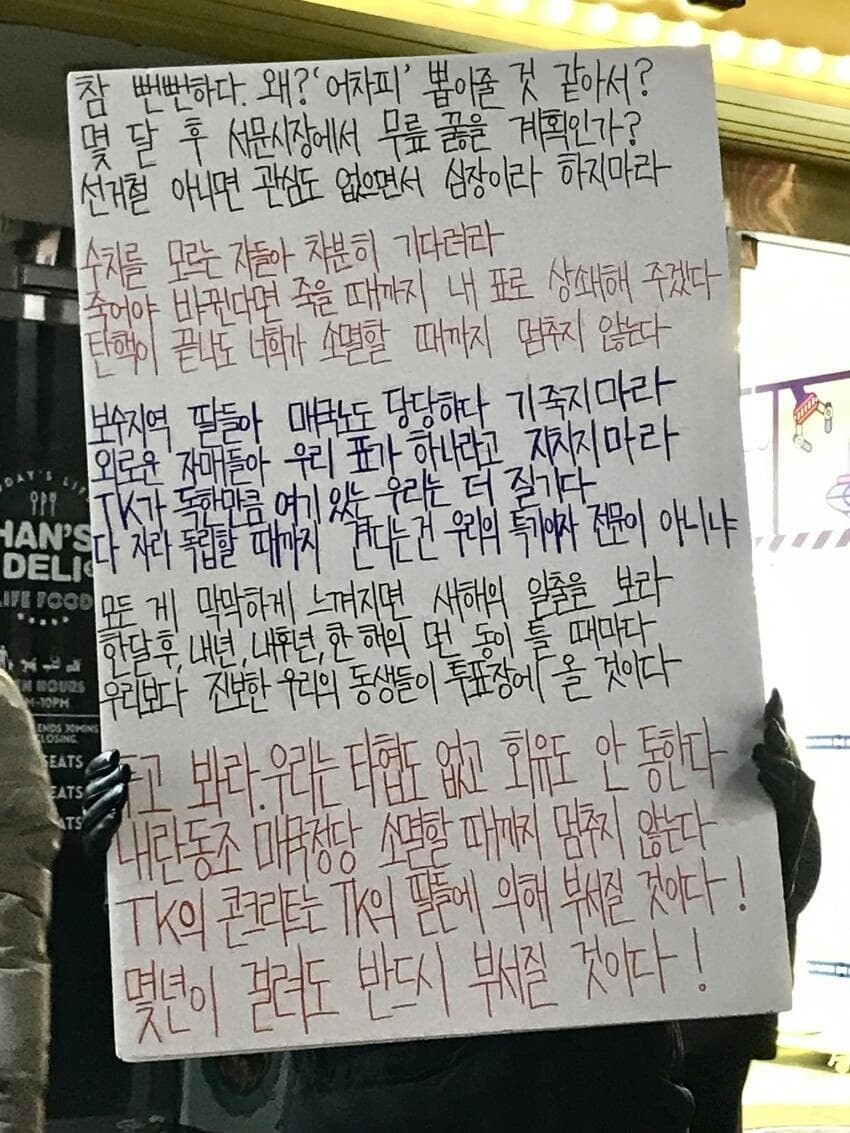 참 뻔뻔하다. 왜? '어차피' 뽑아줄 것 같아서?
몇 달 후 서문시장에서 무릎 꿇을 계획인가?
선거철 아니면 관심도 없으면서 심장이라 하지마라
수치를 모르는 자들아 차분히 기다려라
죽어야 바뀐다면 죽을 때까지 내 표로 상쇄해 주겠다
탄핵이 끝나도 너희가 소멸할 때까지 멈추지 않는다
보수지역 딸들아 매국노도 당당하다 기죽지마라
외로운 자매들아 우리 표가 하나라고 지치지마라
TK가 독한만큼 여기 있는 우리는 더 질기다
다 자라 독립할 때까지 견디는건 우리의 특기이자 전문이 아니냐
모든 게 막막하게 느껴지면 새해의 일출을 보라
한달 후, 내년, 내후년, 한 해의 먼 동이 틀 때마다
우리보다 진보한 우리의 동생들이 투표장에 올 것이다
두고 봐라. 우리는 타협도 없고 회유도 안 통한다
내란동조 매국정당 소멸할 때까지 멈추지 않는다
TK의 콘크리트는 TK의 딸들에 의해 부서질 것이다!
몇년이 걸려도 반드시 부서질 것이다!
HAN'S
DELI
LIFE FOOD
-10PM
ENDS 30MINS
CLOSING.